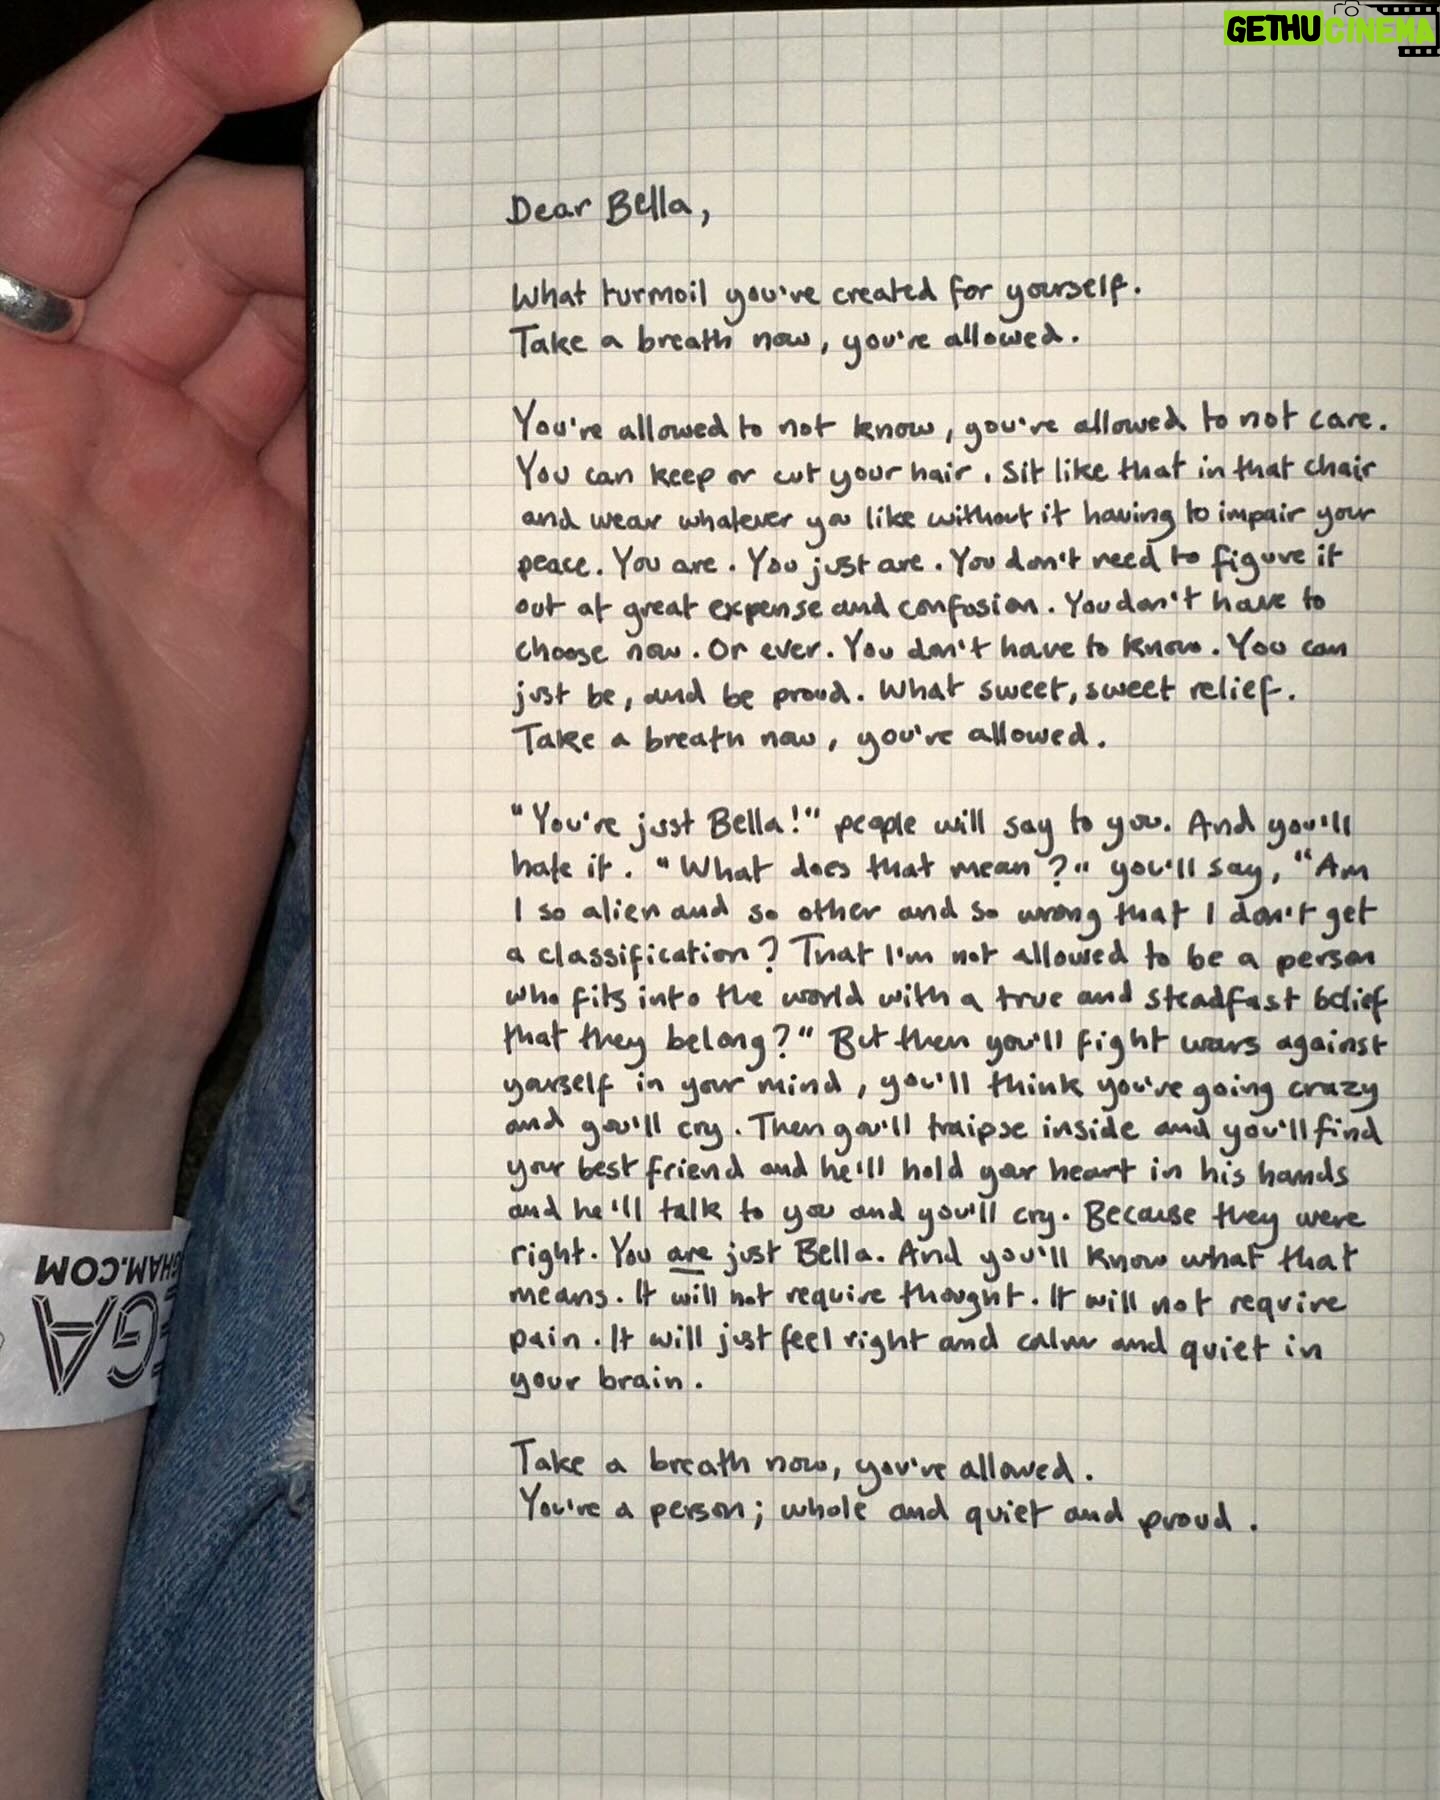 GETHUCINEMA
Dear Bella,
What turmoil you've created for yourself.
Take a breath now, you're allowed.
You're allowed to not know, you're allowed to not care.
You can keep or cut your hair. Sit like that in that chair
and wear whatever you like without it having to impair your
peace. You are. You just are. You don't need to figure it
out at great expense and confusion. You don't have to
choose now. Or ever. You don't have to know. You can
just be, and be proud. What sweet, sweet relief.
Take a breath now, you're allowed.
"You're just Bella!" people will say to you. And you'll
hate it. "What does that mean?" you'll say, "Am
I so alien and so other and so wrong that I don't get
a classification? That I'm not allowed to be a person
who fits into the world with a true and steadfast belief
that they belong?" But then you'll fight wars against
yourself in your mind, you'll think you're going crazy
and you'll cry. Then you'll traipse inside and you'll find
your best friend and he'll hold your heart in his hands
and he'll talk to you and you'll cry. Because they were
right. You are just Bella. And you'll know what that
means. It will not require thought. It will not require
pain. It will just feel right and calm and quiet in
your brain.
Take a breath now, you're allowed.
You're a person; whole and quiet and proud.
GHAM.COM
GA